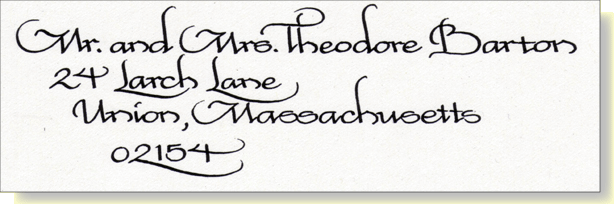 Mr. and Mrs. Theodore Barton
24 Larch Lane
Union, Massachusetts
02154